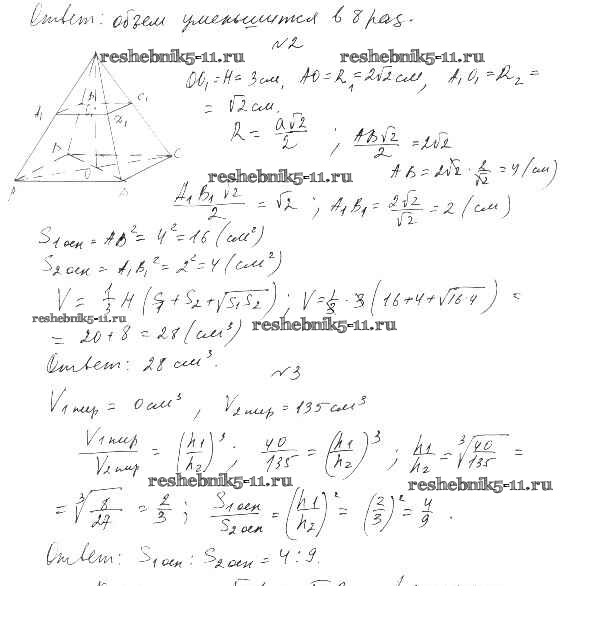 Ответ: объем уменьшится в 8 раз.
№2
reshebnik5-11.ru reshebnik5-11.ru
OO₁ = H = 3 см, AO = R₁ = 2√2 см, A₁O₁ = R₂ =
= √2 см.
R = a√2/2 ; AB√2/2 = 2√2
AB = 2√2 · 2/√2 = 4 (см)
reshebnik5-11.ru
A₁B₁√2/2 = √2 ; A₁B₁ = 2√2/√2 = 2 (см)
S₁осн = AB² = 4² = 16 (см²)
S₂осн = A₁B₁² = 2² = 4 (см²)
V = 1/3 H (S₁ + S₂ + √S₁S₂) ; V = 1/3 · 3 (16 + 4 + √16·4) =
reshebnik5-11.ru reshebnik5-11.ru
= 20 + 8 = 28 (см³)
Ответ: 28 см³.
№3
V₁пир = 0 см³ , V₂пир = 135 см³
V₁пир/V₂пир = (h₁/h₂)³ ; 40/135 = (h₁/h₂)³ ; h₁/h₂ = ∛40/135 =
reshebnik5-11.ru reshebnik5-11.ru
= ∛8/27 = 2/3 ; S₁осн/S₂осн = (h₁/h₂)² = (2/3)² = 4/9 .
Ответ: S₁осн : S₂осн = 4 : 9.